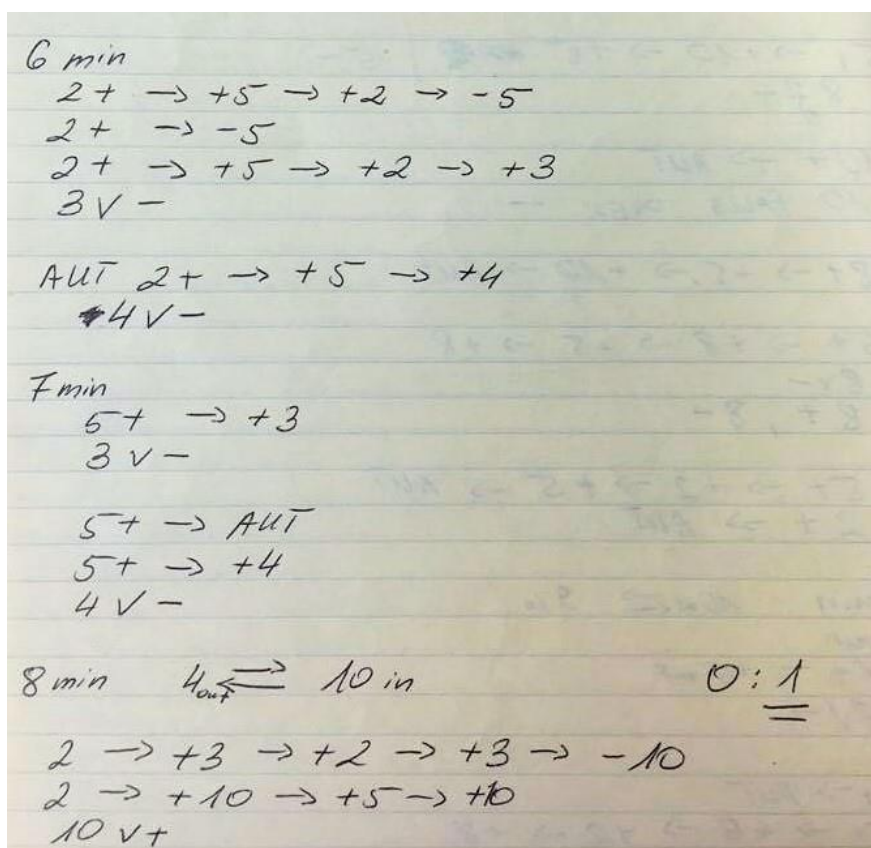 6 min
2+ → +5 → +2 → -5
2+ → -5
2+ → +5 → +2 → +3
3 V -
AUT 2+ → +5 → +4
4 V -
7 min
5+ → +3
3 V -
5+ → AUT
5+ → +4
4 V -
8 min 4out ⇄ 10 in 0:1
2 → +3 → +2 → +3 → -10
2 → +10 → +5 → +10
10 V +